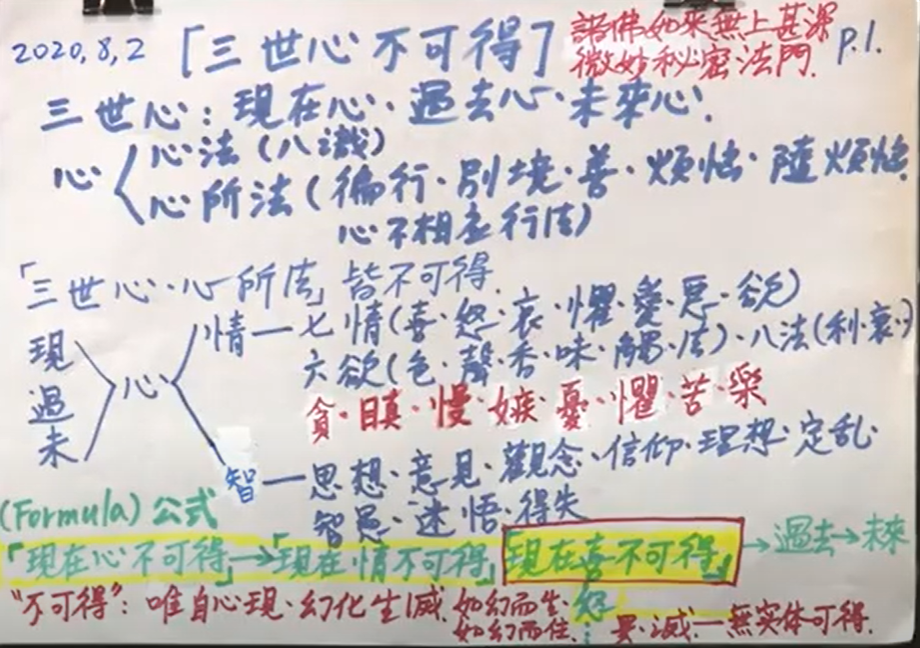 2020,8,2「三世心不可得」諸佛如來無上甚深 P.1.
微妙秘密法門.
三世心:現在心·過去心·未來心.
心
心法(八識)
心所法(徧行·別境·善·煩惱·隨煩惱.
心不相应行法)
「三世心·心所法」皆不可得.
現
過
未
心
情—七情(喜·怒·哀·懼·愛·惡·欲)
六欲(色·聲·香·味·觸·法)·八法(利·衰··)
貪·瞋·慢·嫉·憂·懼·苦·樂
智—思想·意見·觀念·信仰·理想·定乱·
智愚·迷悟·得失
(Formula)公式
「現在心不可得」→「現在情不可得」「現在喜不可得」→過去→未來
怒
⋮
"不可得":唯自心現·幻化生滅.如幻而生·
如幻而住. 異·滅.—無实体可得.